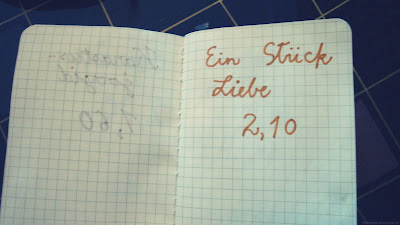 Ein Stück
Liebe
2,10
1,60